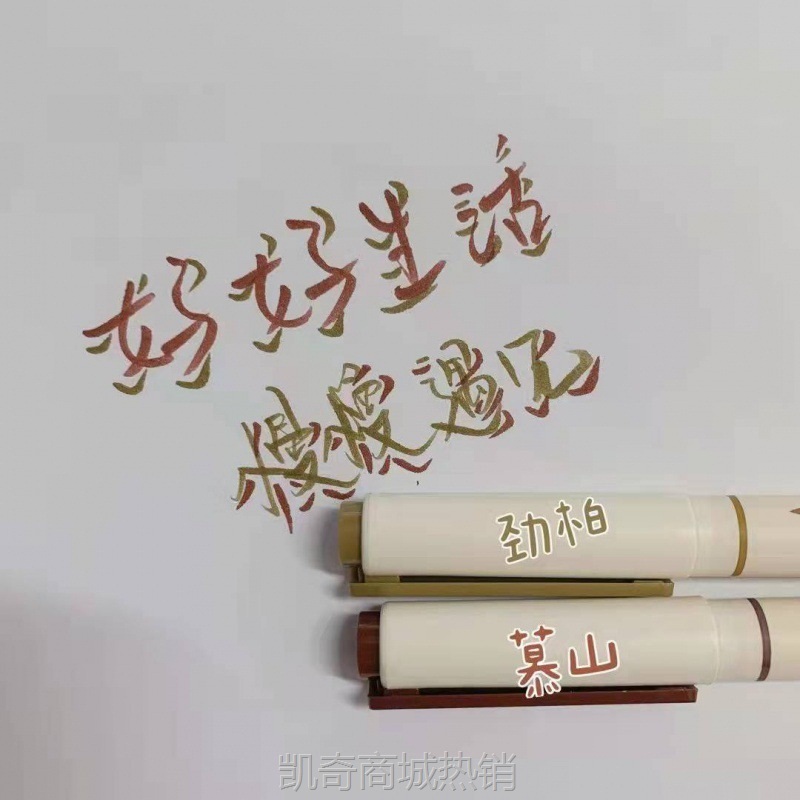 好好生活
慢慢遇见
劲柏
慕山
凯奇商城热销